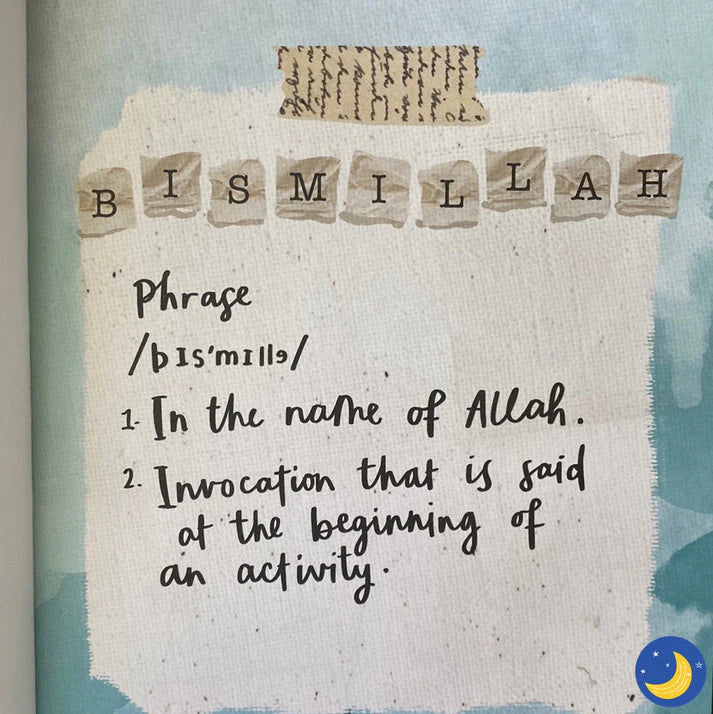 BISMILLAH
Phrase
/bIs'mIllə/
1. In the name of Allah.
2. Invocation that is said
at the beginning of
an activity.